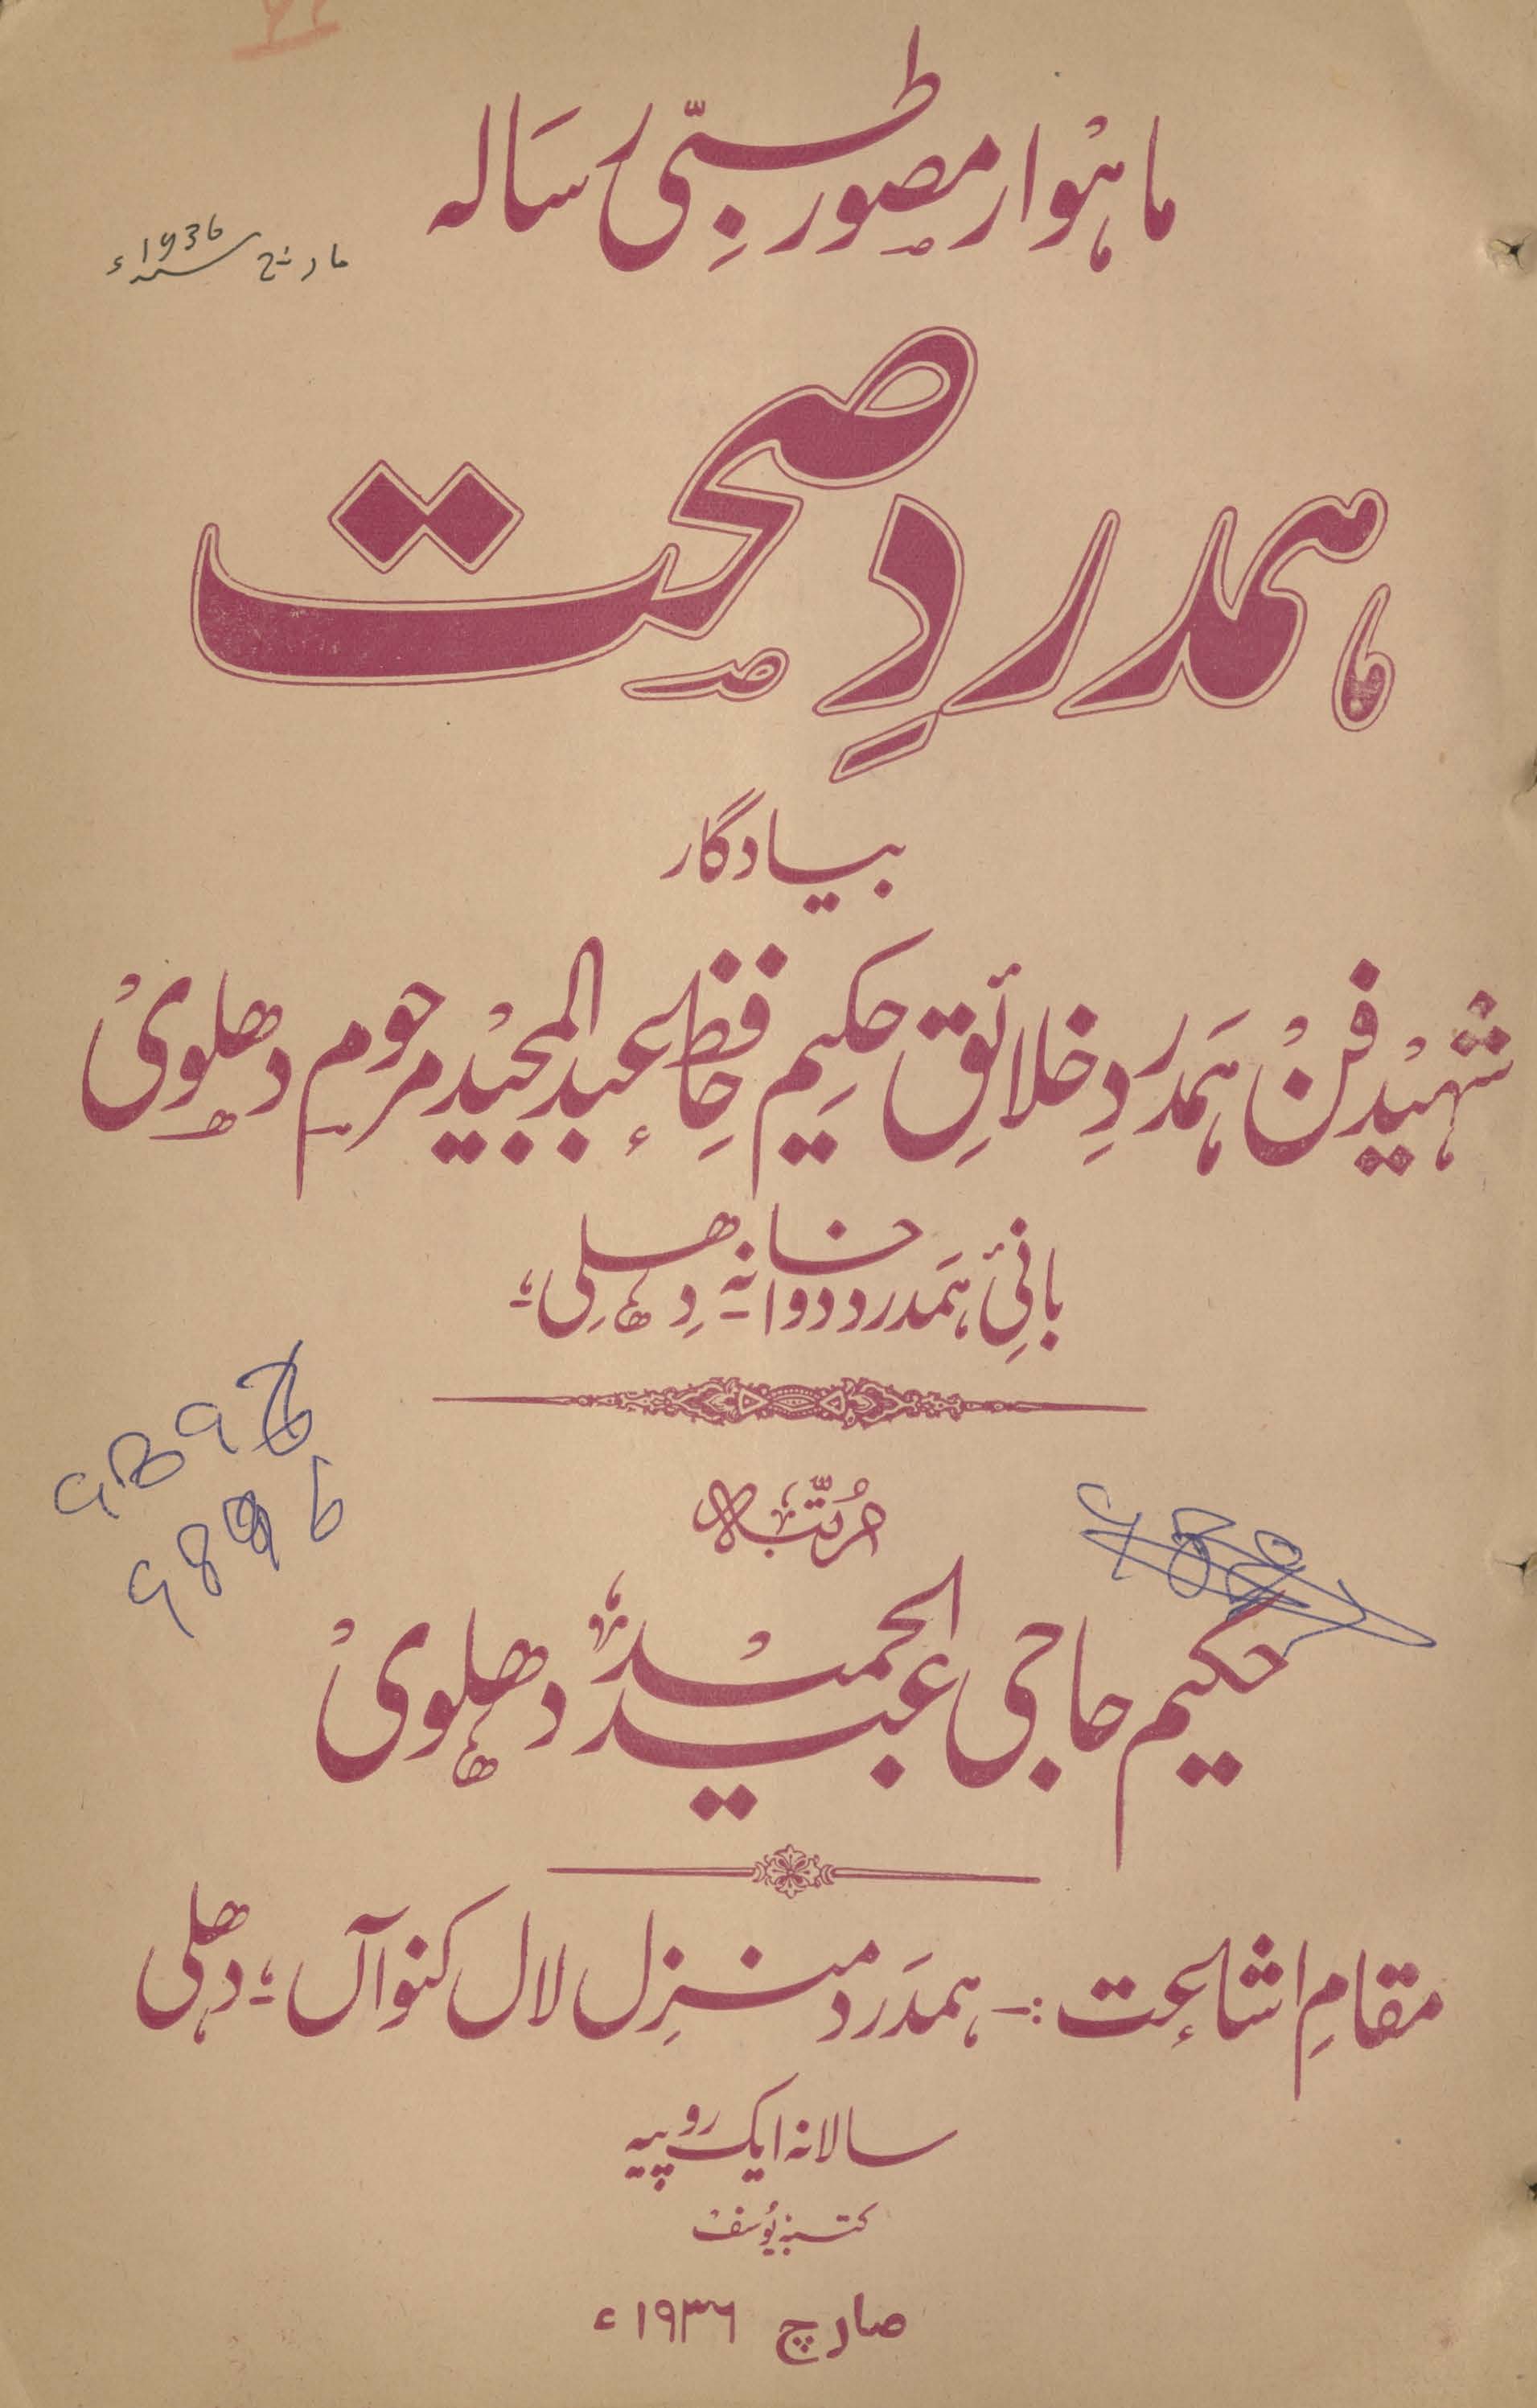 ماہوار مصور طبّی رسالہ
مارچ 1936ء
ہمدردِ صحت
بیادگار
شہید فن ہمدردِ خلائق حکیم حافظ عبدالمجید مرحوم دھلوی
بانیٔ ہمدرد دواخانہ دھلی؛
9896
مرتّبہ
حکیم حاجی عبدالحمید دھلوی
مقامِ اشاعت :۔ ہمدرد منزل لال کنواں ؛ دھلی
سالانہ ایک روپیہ
کتبہٗ یوسف
مارچ ۱۹۳۶ء